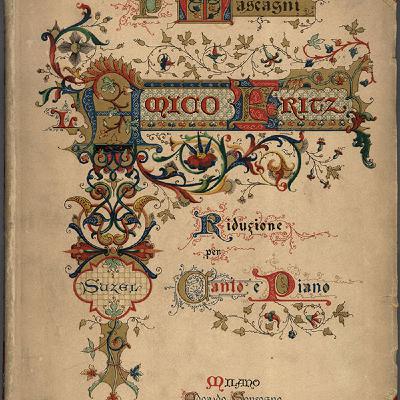 P. Mascagni
L'AMICO FRITZ
Riduzione
per
SUZEL
Canto e Piano
MILANO
Edoardo Sonzogno